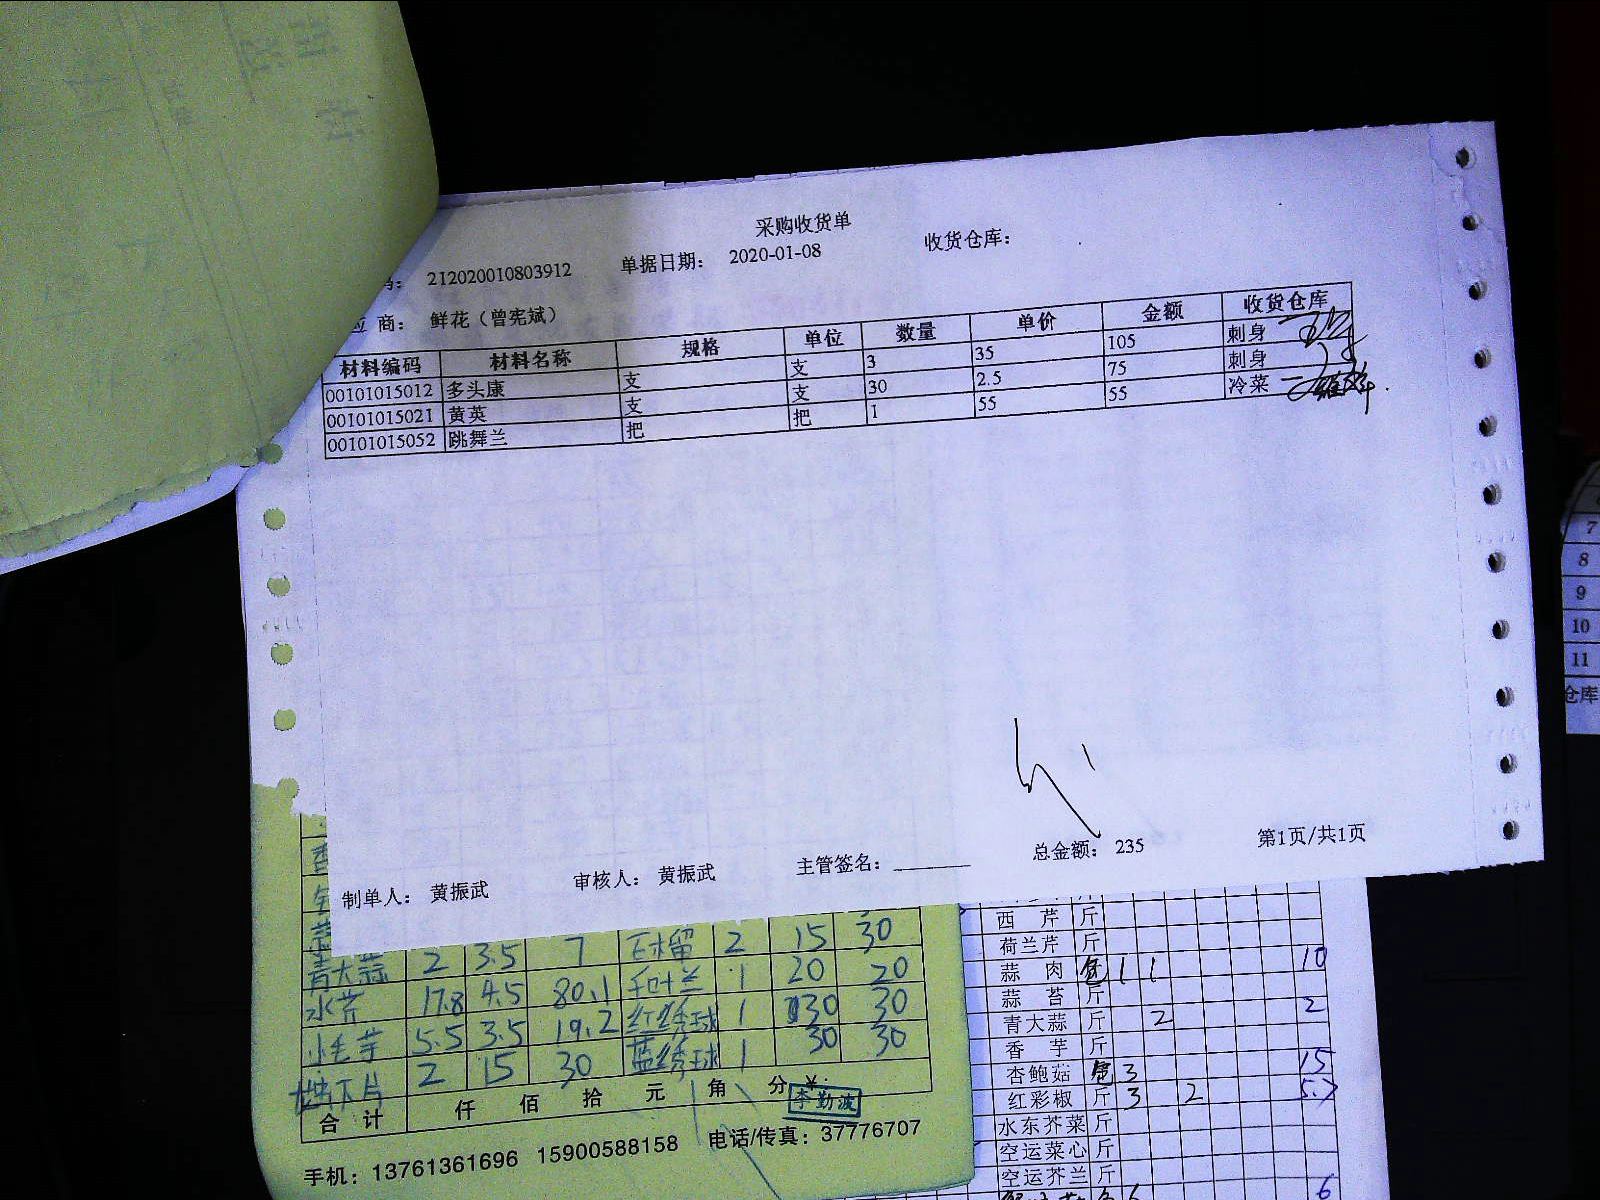 采购收货单
212020010803912 单据日期： 2020-01-08 收货仓库：
应 商： 鲜花（曾宪斌）
材料编码 材料名称 规格 单位 数量 单价 金额 收货仓库
00101015012 多头康 支 支 3 35 105 刺身
00101015021 黄英 支 支 30 2.5 75 刺身
00101015052 跳舞兰 把 把 1 55 55 冷菜
制单人： 黄振武 审核人： 黄振武 主管签名： 总金额： 235 第1页/共1页
7
8
9
10
11
仓库
青大蒜 2 3.5 7 石榴 2 15 30
水芹 17.8 4.5 80.1 1 20 20
小毛芋 5.5 3.5 19.2 红绣球 1 30 30
2 15 30 蓝绣球 1 30 30
合 计 仟 佰 拾 元 角 分 ¥：
李勤波
手机：13761361696 15900588158 电话/传真：37776707
西 芹 斤
荷兰芹 斤
蒜 肉 包 1 1 10
蒜 苔 斤
青大蒜 斤 2 2
香 芋 斤
杏鲍菇 包 3 15
红彩椒 斤 3 2 5.7
水东芥菜 斤
空运菜心 斤
空运芥兰 斤
6 6